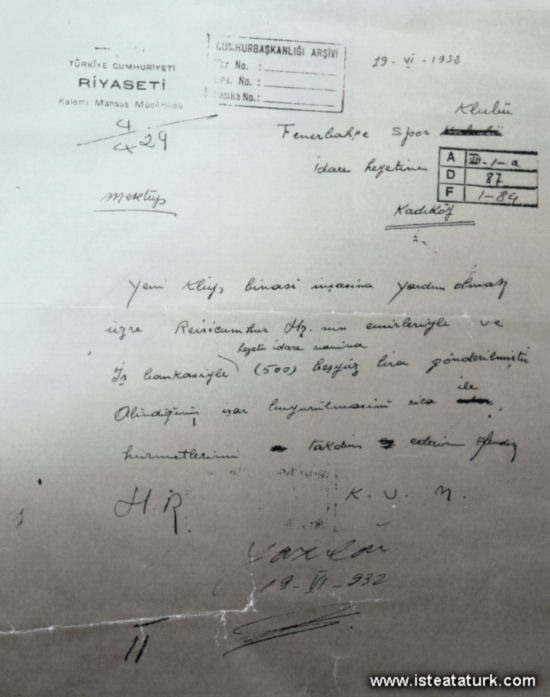 TÜRKİYE CUMHURİYETİ
RİYASETİ
Kalemi Mahsus Müdürlüğü
4/4 29
CUMHURBAŞKANLIĞI ARŞİVİ
No. :
No. :
No. :
19 - VI - 1932
Klubü
Fenerbahçe Spor
idare heyetine
A III-1-a
D 87
F 1-84
mektup
Kadıköy
Yeni Klüp binası inşasına yardım olmak
üzre Reisicumhur Hz. nin emirleriyle ve
heyeti idare namına
İş bankasiyle (500) beşyüz lira gönderilmiştir
Alındığının iş'ar buyurulmasını rica ile
hürmetlerimi takdim ederim efendim
H.R. K. U. M.
Yazıldı
19 - VI - 932
II
www.isteataturk.com